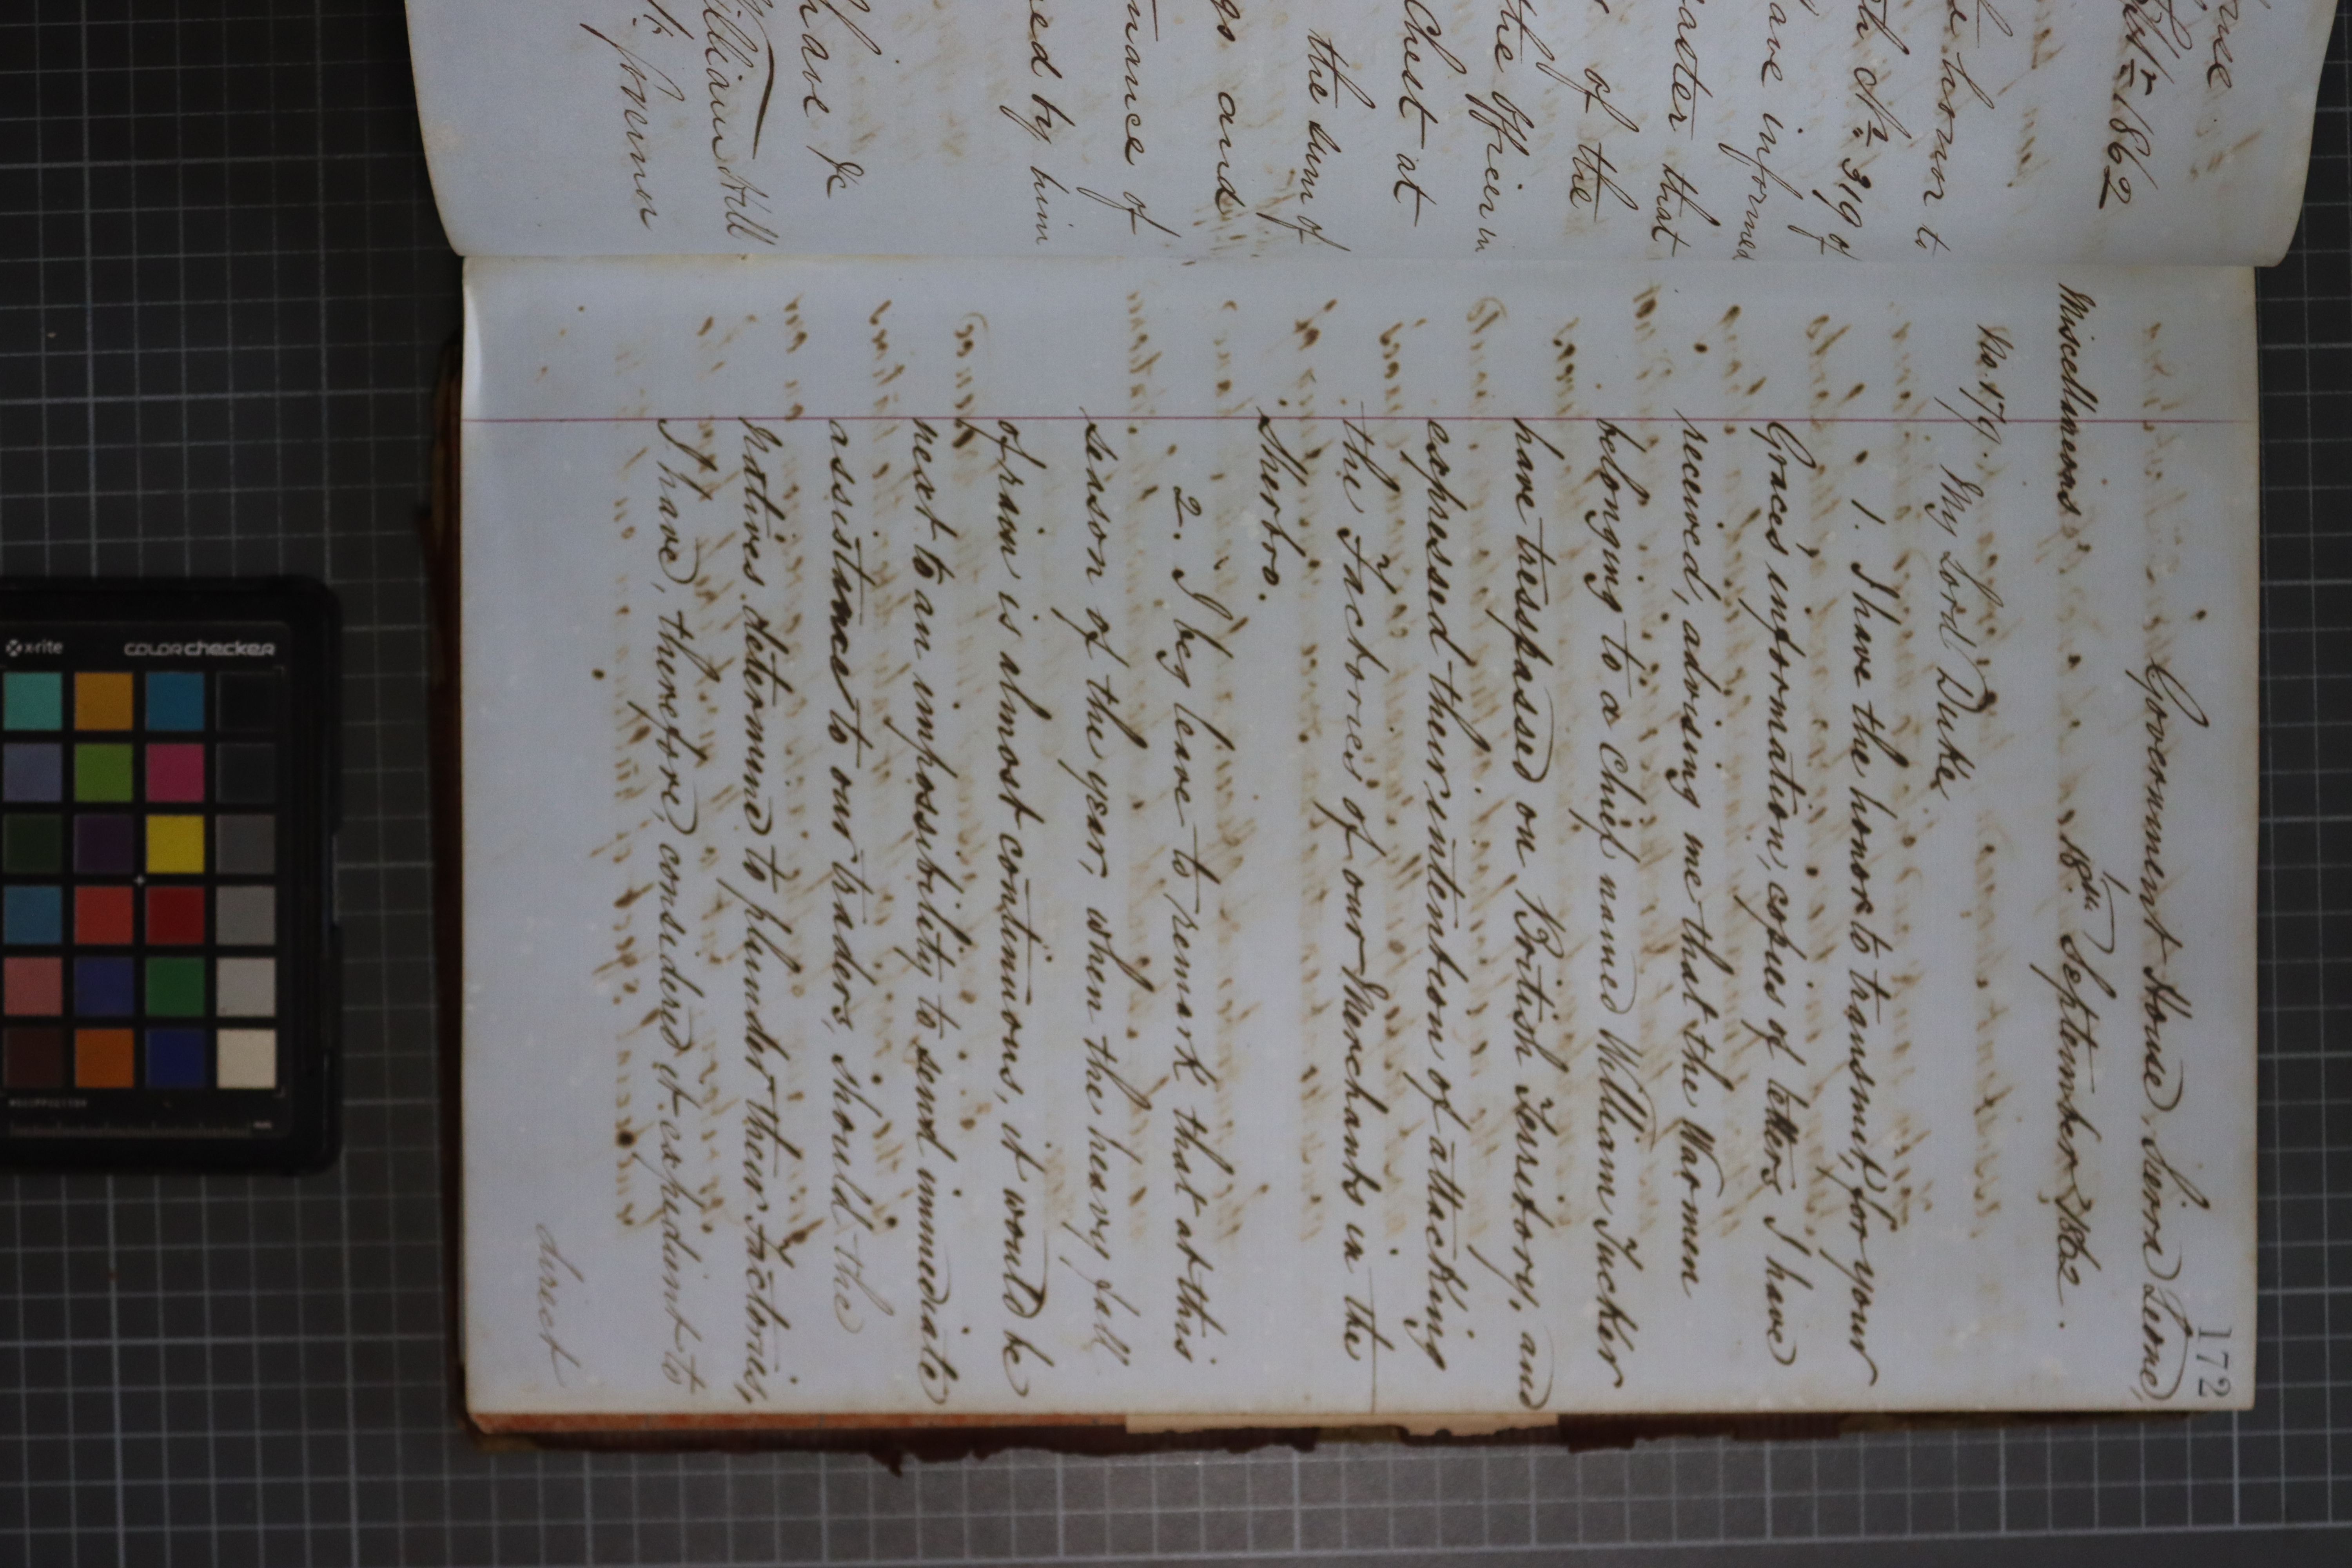 ouse
1862
e honor to
ch No. 319 of
ave informed
aster that
of the
the Officer in
Chest at
the sum of
gs and
mance of
ed by him
have &c
William Hill
172
Government House, Sierra Leone,
Miscellaneous 18th September 1862.
No. 179. My Lord Duke,
1. I have the honor to transmit, for your
Grace's information, copies of letters I have
received, advising me that the War men
belonging to a chief named William Tucker
have tresspassed on British Territory, and
expressed their intention of attacking
the Factories of our Merchants in the
Sherbro.
2. I beg leave to remark that at this
season of the year, when the heavy fall
of rain is almost continuous, it would be
next to an impossibility to send immediate
assistance to our traders, should the
natives determine to plunder their Factories,
I have, therefore, considered it expedient to
direct
x-rite colorchecker